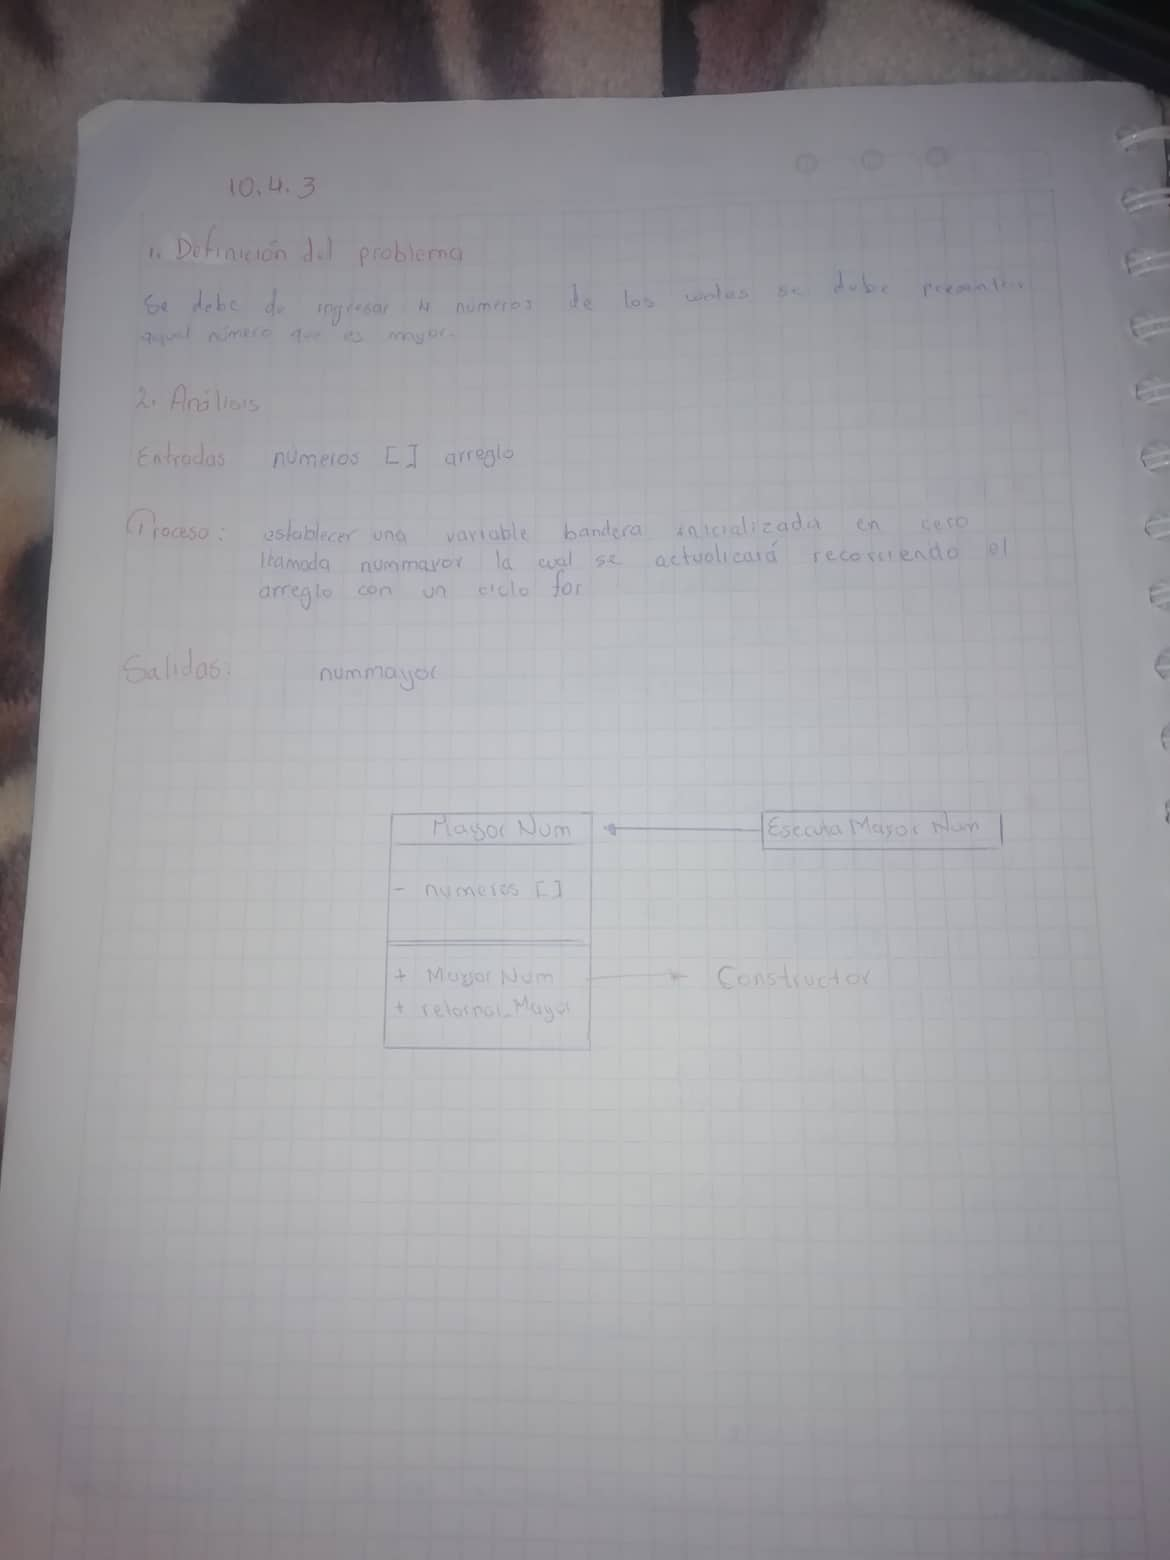 10.4.3
1. Definición del problema
Se debe de ingresar N números de los cuales se debe presentar
aquel número que es mayor.
2. Análisis
Entradas numeros [] arreglo
Proceso: establecer una variable bandera inicializada en cero
llamada nummayor la cual se actualicará recorriendo el
arreglo con un ciclo for
Salidas: nummayor
Mayor Num
Esecuta Mayor Num
- numeros []
+ Mayor Num
Constructor
+ retornar_Mayor